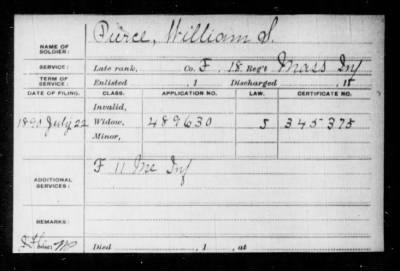 NAME OF SOLDIER: Pierce, William S.
SERVICE: Late rank, Co. F, 18 Reg't Mass Inf
TERM OF SERVICE: Enlisted , 1 Discharged , 1
DATE OF FILING. CLASS. APPLICATION NO. LAW. CERTIFICATE NO.
Invalid,
1890 July 22 Widow, 489630 S 345375
Minor,
ADDITIONAL SERVICES: F 11 Me Inf
REMARKS:
Died , 1 , at